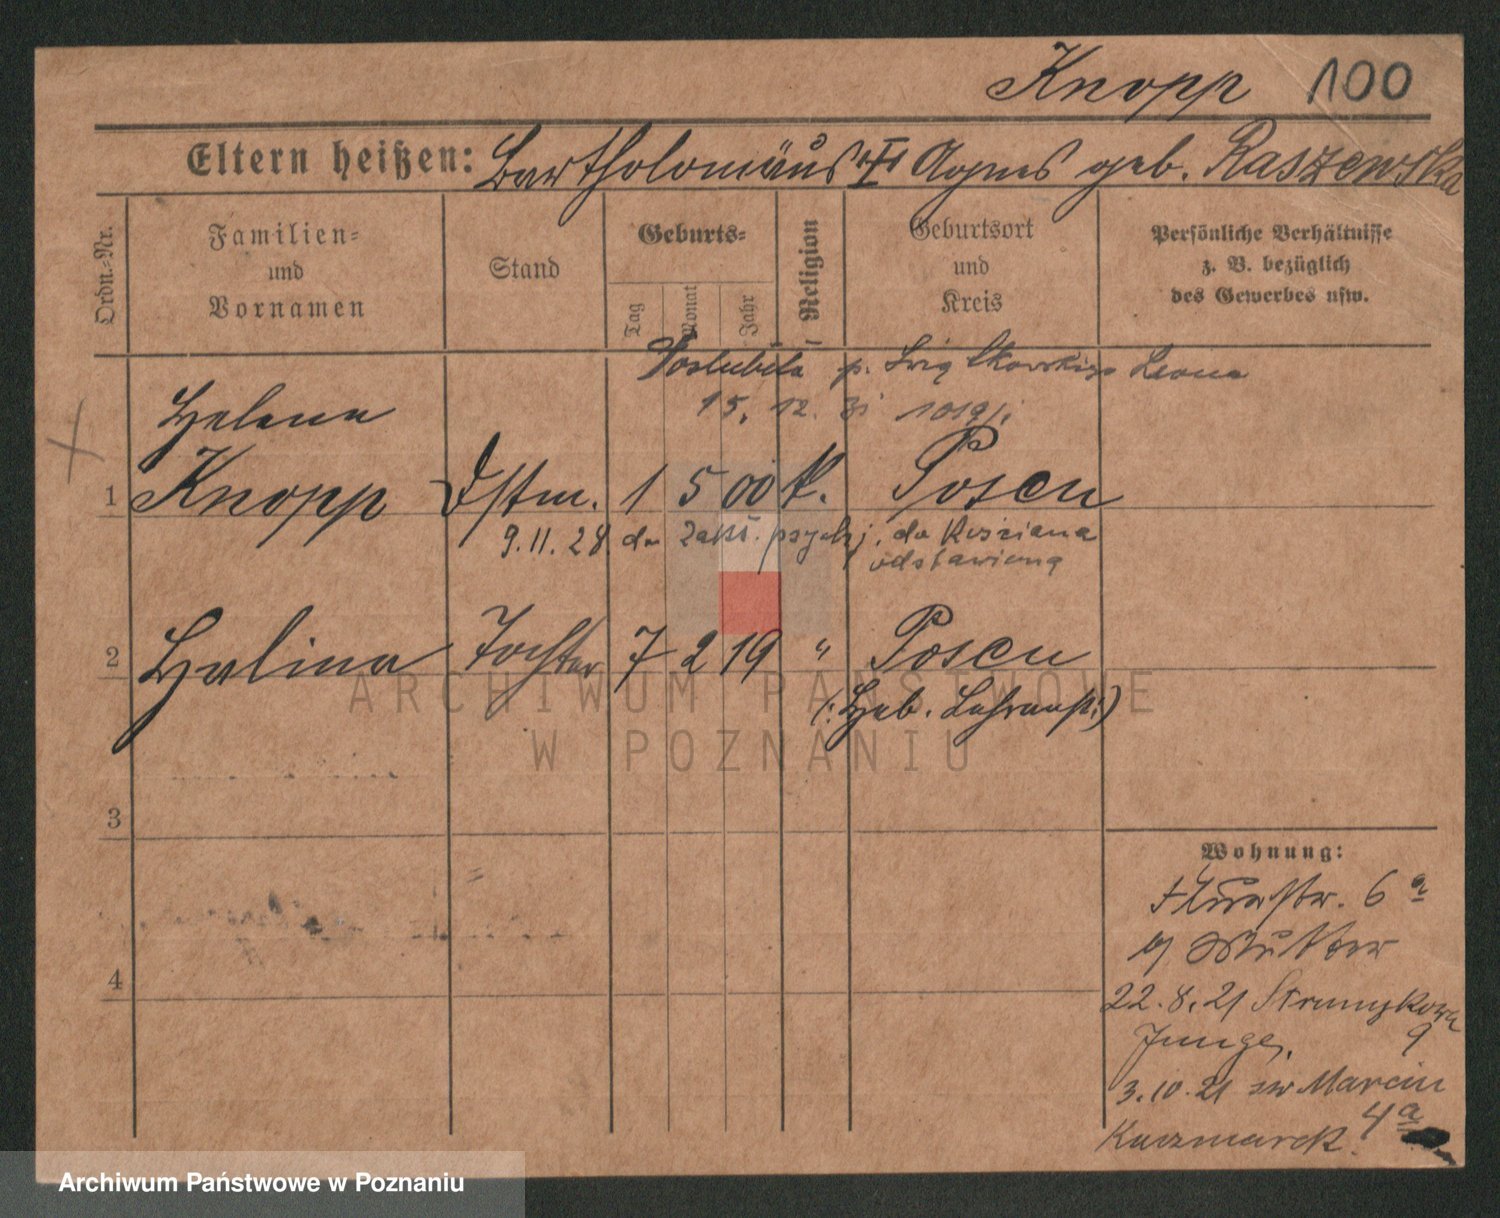 Knopp 100
Eltern heißen: Bartholomäus u. Agnes geb. Raszewska
Ordn.-Nr.
Familien-
und
Vornamen
Stand
Geburts-
Tag
Monat
Jahr
Religion
Geburtsort
und
Kreis
Persönliche Verhältnisse
z. B. bezüglich
des Gewerbes usw.
Poślubiła p. Leona
15. 12. 31
Helena
1 Knopp Dstm. 1 5 00 k. Posen
9. 11. 28 do Zakł. psych. do Kościana
odstawiona
2 Halina Tochter 7 2 19 " Posen
(: Heb. Lehranst :)
ARCHIWUM PAŃSTWOWE
W POZNANIU
3
4
Wohnung:
6 a
Mutter
22. 8. 21 9
Junge,
3. 10. 21 Marcin
4 a
Kaczmarek.
Archiwum Państwowe w Poznaniu